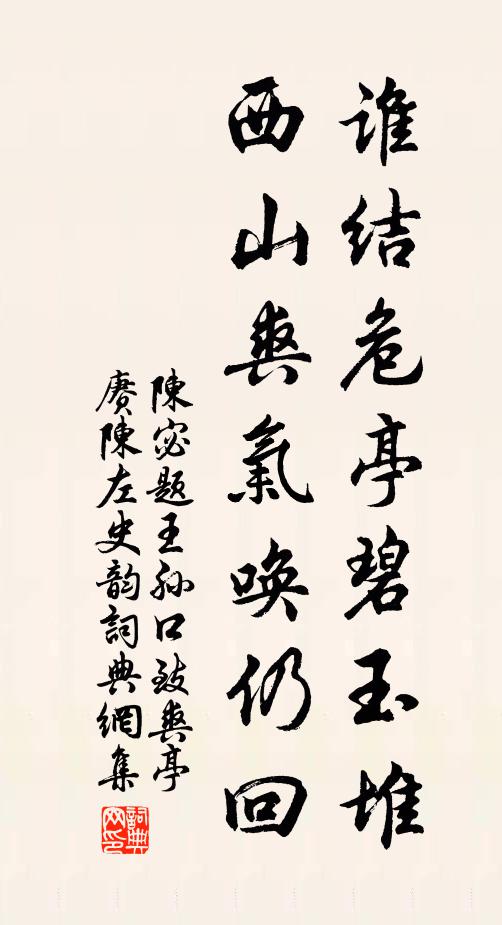 誰結危亭碧玉堆
西山爽氣喚仍回
陳宓題王孫口致爽亭
賡陳左史韵詞典網集
詞典
网印